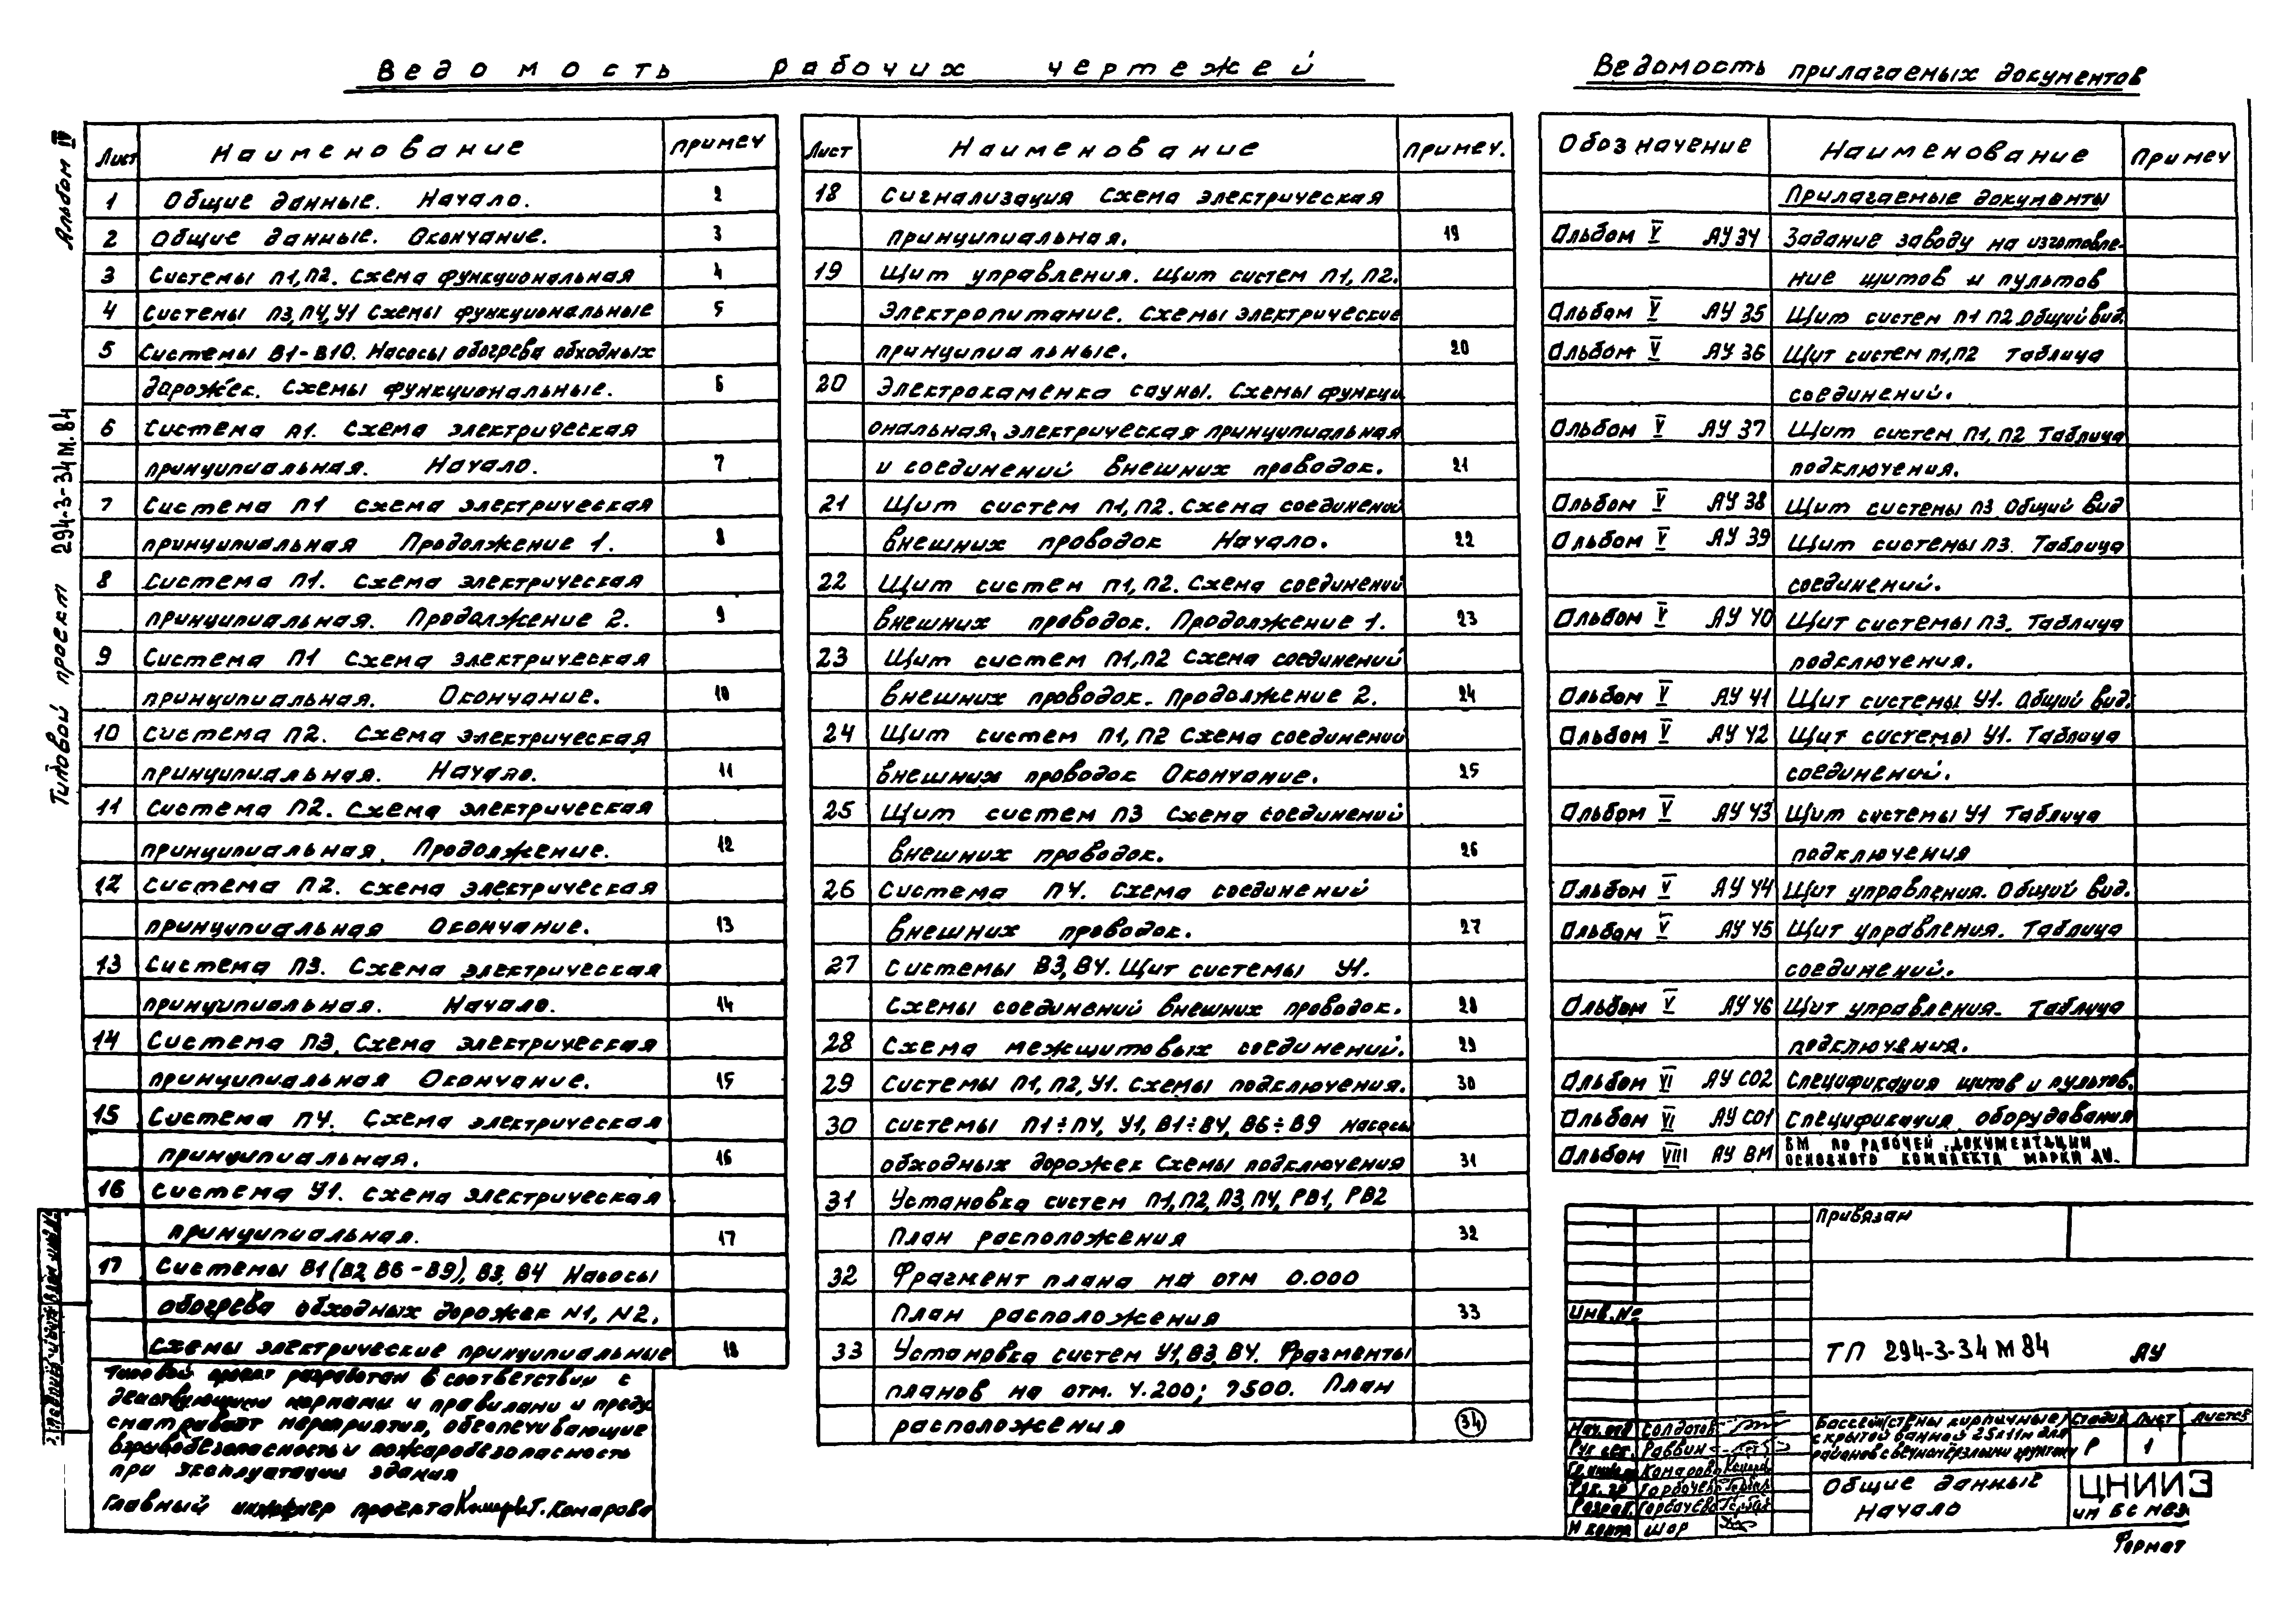 Ведомость рабочих чертежей
Ведомость прилагаемых документов
Альбом IV
Типовой проект 294-3-34м.84
Лист Наименование примеч
1 Общие данные. Начало. 2
2 Общие данные. Окончание. 3
3 Системы П1,П2. Схема функциональная 4
4 Системы П3,П4,У1 Схемы функциональные 5
5 Системы В1-В10. Насосы обогрева обходных
дарожек. Схемы функциональные. 6
6 Система П1. Схема электрическая
принципиальная. Начало. 7
7 Система П1 схема электрическая
принципиальная Продолжение 1. 8
8 Система П1. Схема электрическая
принципиальная. Продолжение 2. 9
9 Система П1 Схема электрическая
принципиальная. Окончание. 10
10 Система П2. Схема электрическая
принципиальная. Начало. 11
11 Система П2. Схема электрическая
принципиальная. Продолжение. 12
12 Система П2. схема электрическая
принципиальная Окончание. 13
13 Система П3. Схема электрическая
принципиальная. Начало. 14
14 Система П3. Схема электрическая
принципиальная Окончание. 15
15 Система П4. Схема электрическая
принципиальная. 16
16 Система У1. схема электрическая
принципиальная. 17
17 Системы В1(В2 В6-В9), В3, В4 Насосы
обогрева обходных дорожек N1, N2.
Схемы электрические принципиальные 18
Типовой проект разработан в соответствии с
действующими нормами и правилами и преду
сматривает мероприятия, обеспечивающие
взрывобезопасность и пожаробезопасность
при эксплуатации здания
Главный инженер проекта Т. Комарова
Лист Наименование Примеч.
18 Сигнализация Схема электрическая
принципиальная. 19
19 Щит управления. Щит систем П1, П2.
Электропитание. Схемы электрические
принципиальные. 20
20 Электрокаменка сауны. Схемы функци
ональная, электрическая принципиальная
и соединений внешних проводок. 21
21 Щит систем П1,П2. Схема соединений
внешних проводок Начало. 22
22 Щит систем П1, П2. Схема соединений
внешних проводок. Продолжение 1. 23
23 Щит систем П1,П2 Схема соединений
внешних проводок. Продолжение 2. 24
24 Щит систем П1, П2 Схема соединений
внешних проводок Окончание. 25
25 Щит систем П3 Схема соединений
внешних проводок. 26
26 Система П4. Схема соединений
внешних проводок. 27
27 Системы В3, В4. Щит системы У1.
Схемы соединений внешних проводок. 28
28 Схема межщитовых соединений. 29
29 Системы П1, П2, У1. Схемы подключения. 30
30 системы П1÷П4, У1, В1÷В4, В6÷В9 насосы
обходных дорожек Схемы подключения 31
31 Установка систем П1,П2,П3,П4, РВ1, РВ2
План расположения 32
32 Фрагмент плана на отм 0.000
План расположения 33
33 Установка систем У1, В3, В4. Фрагменты
планов на отм. 4.200; 7500. План
расположения 34
Обозначение Наименование Примеч
Прилагаемые документы
Альбом V АУ 34 Задание заводу на изготовле-
ние щитов и пультов
Альбом V АУ 35 Щит систем П1 П2 Общий вид.
Альбом V АУ 36 Щит систем П1,П2 Таблица
соединений.
Альбом V АУ 37 Щит систем П1, П2 Таблица
подключения.
Альбом V АУ 38 Щит системы П3 Общий вид
Альбом V АУ 39 Щит системы П3. Таблица
соединений.
Альбом V АУ 40 Щит системы П3. Таблица
подключения.
Альбом V АУ 41 Щит системы У1. Общий вид.
Альбом V АУ 42 Щит системы У1. Таблица
соединений.
Альбом V АУ 43 Щит системы У1 Таблица
подключения
Альбом V АУ 44 Щит управления. Общий вид.
Альбом V АУ 45 Щит управления. Таблица
соединений.
Альбом V АУ 46 Щит управления. Таблица
подключения.
Альбом VI АУ СО2 Спецификация щитов и пультов.
Альбом VI АУ СО1 Спецификация оборудования
Альбом VIII АУ ВМ ВМ по рабочей документации
основного комплекта марки АУ.
Привязан
Инв.№
ТП 294-3-34 м 84 АУ
Нач. отд Солдатов
Рук. сек. Раввин
Гл. инж. Комарова
Рук. гр Горбачева
Разраб. Горбачева
Н контр Шор
Бассейн (стены кирпичные)
с крытой ванной 25х11м для
районов с вечномерзлыми грунтами
Стадия Лист Листов
Р 1
Общие данные
Начало
ЦНИИЭ
им Б С Мез
Формат